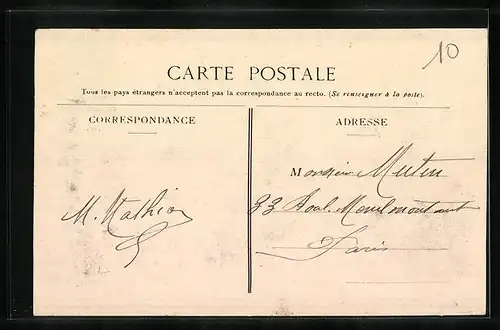 10
CARTE POSTALE
Tous les pays étrangers n'acceptent pas la correspondance au recto. (Se renseigner à la poste).
CORRESPONDANCE
ADRESSE
M. Mathieu
Monsieur Mutin
33 Boul. Menilmontant
Paris